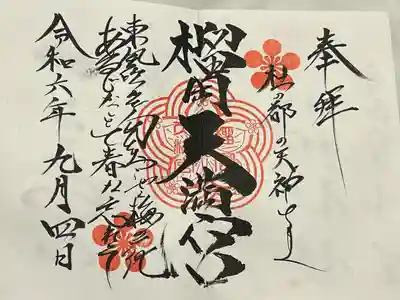 奉拝
杜の都の天神さま
榴岡天満宮
東風吹かば 匂ひおこせよ 梅の花
あるじなしとて 春な忘れそ
令和六年 九月 四日